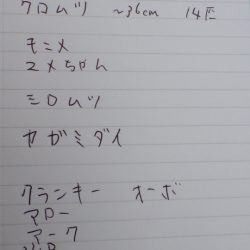 クロムツ ～36cm 14匹
モニメ
ユメちゃん
シロムツ
カガミダイ
クランキー オーボ
アロー
アーク